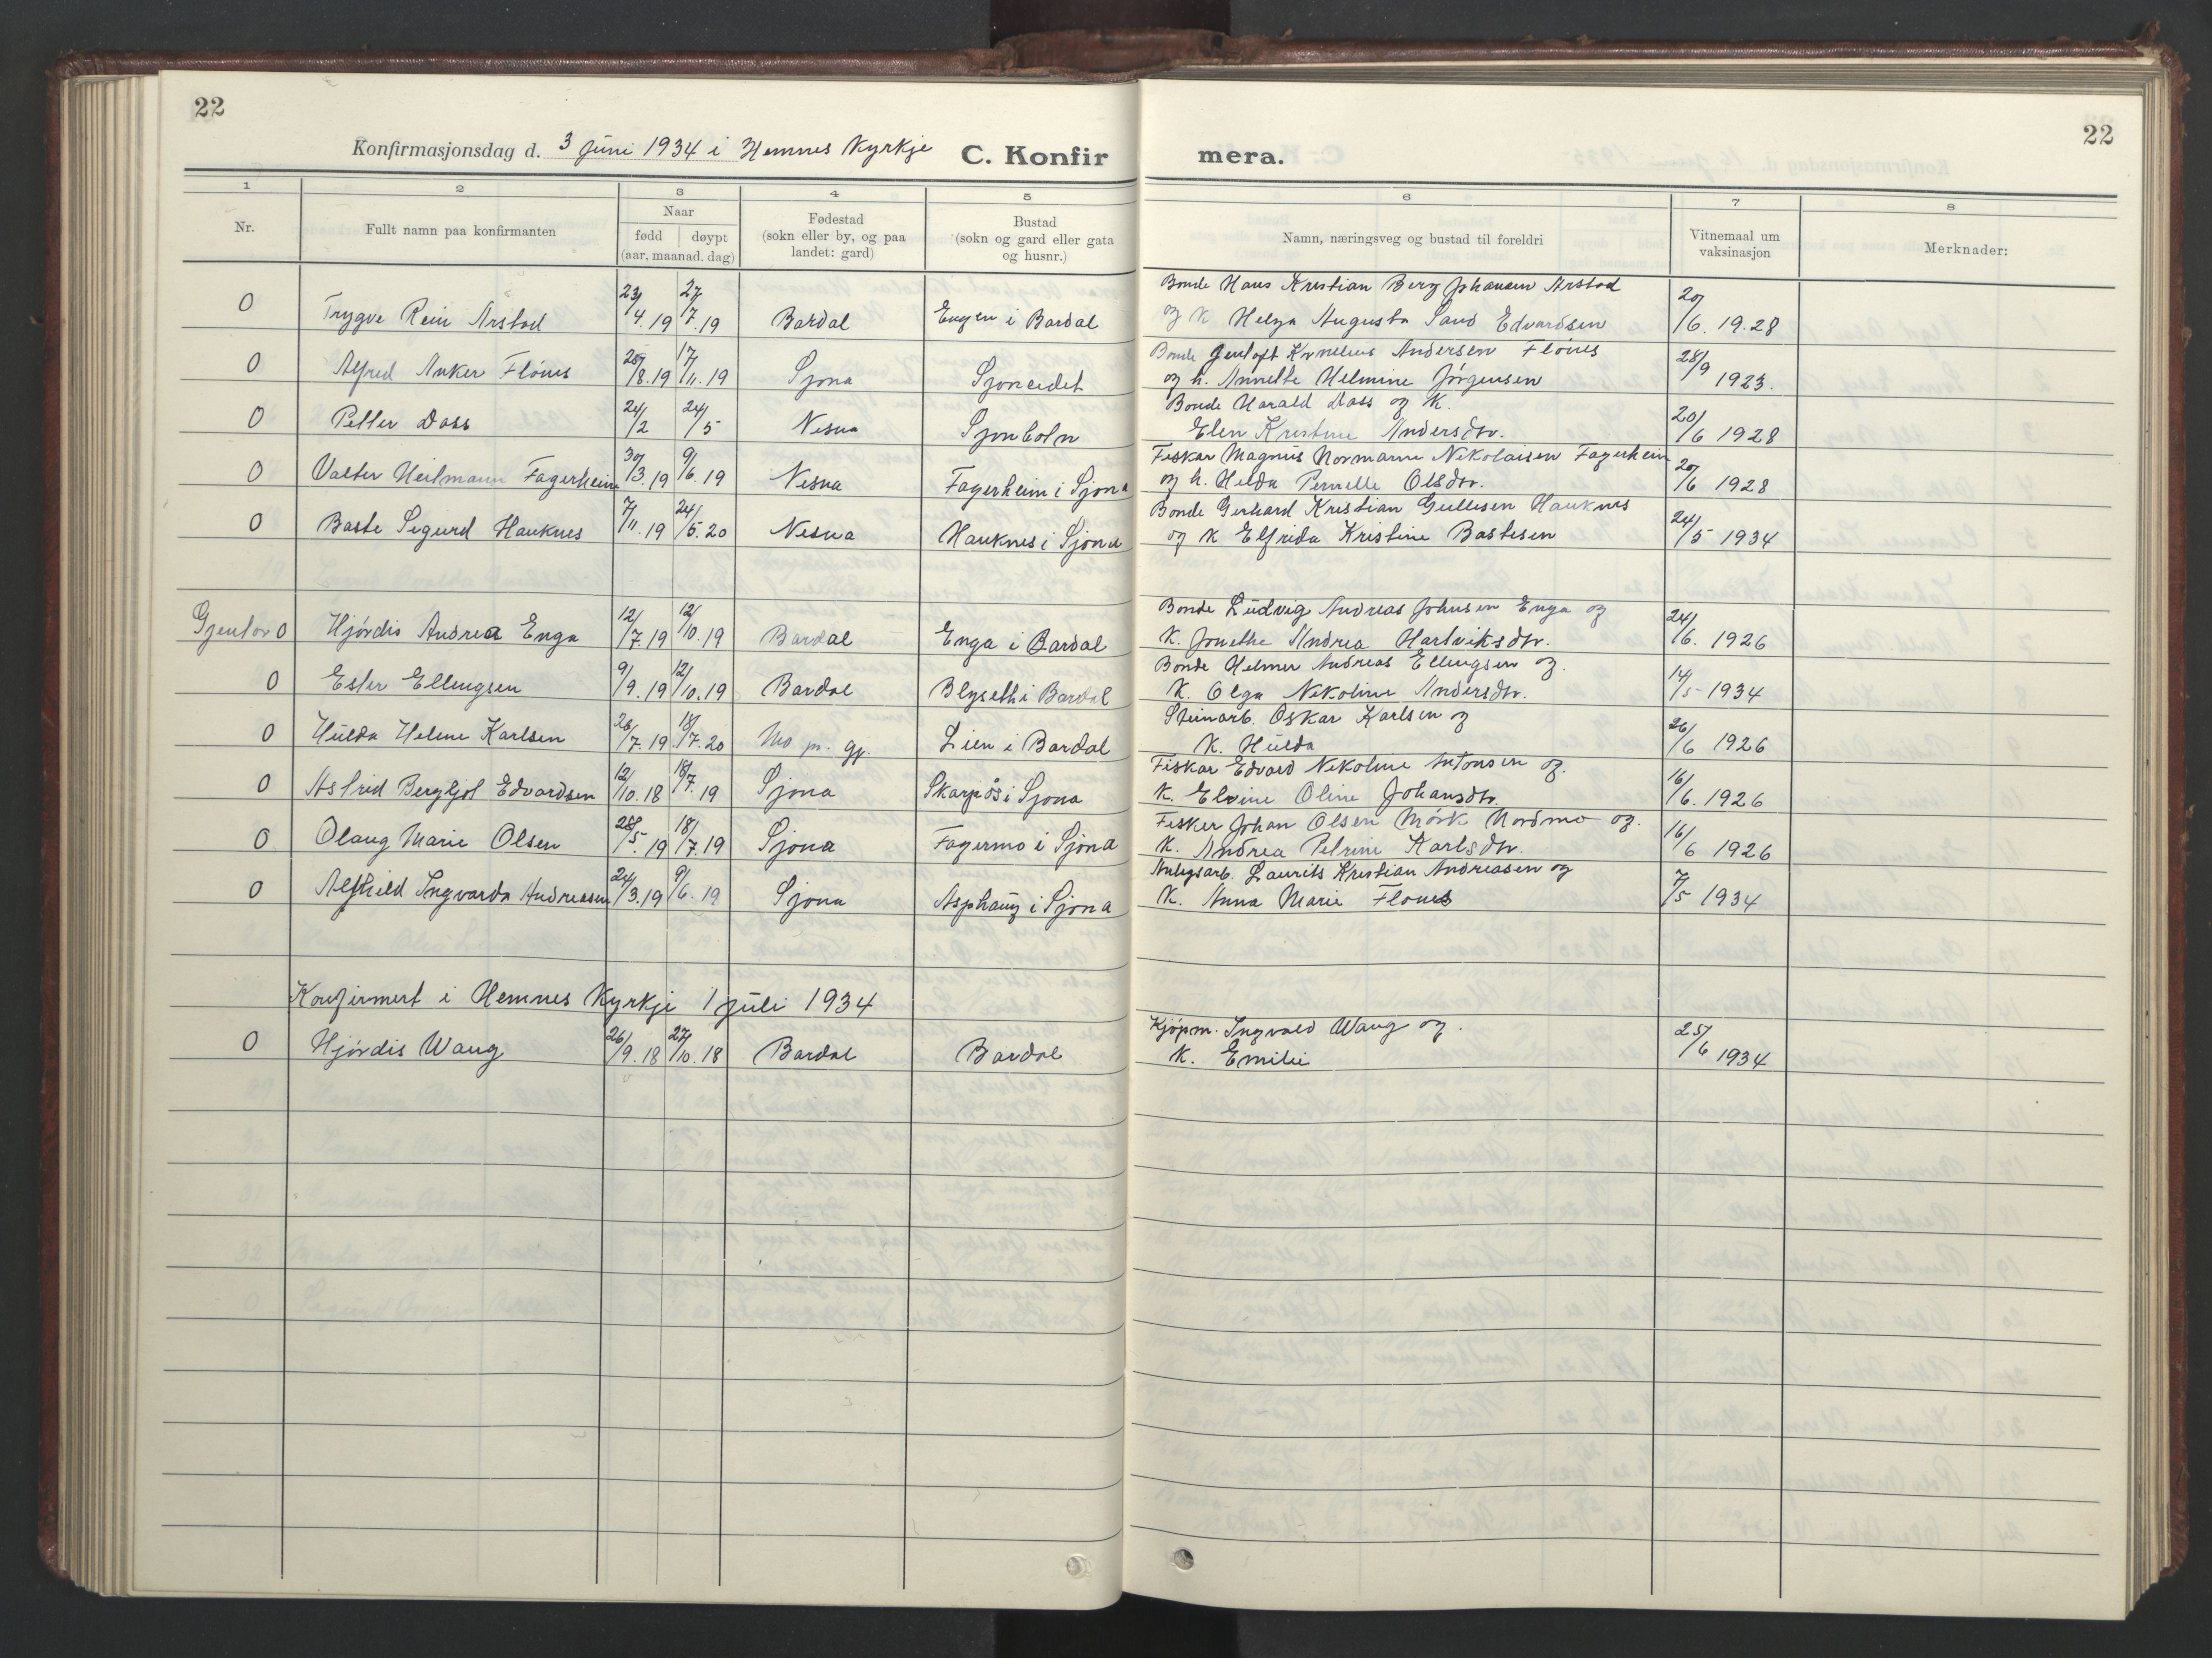 22
22
Konfirmasjonsdag d. 3 Juni 1934 i Hemnes Kyrkje C. Konfir mera.
1 2 3 4 5 6 7 8
Nr. Fullt namn paa konfirmanten Naar fødd døypt (aar, maanad. dag) Fødestad (sokn eller by, og paa landet: gard) Bustad (sokn og gard eller gata og husnr.) Namn, næringsveg og bustad til foreldri Vitnemaal um vaksinasjon Merknader:
Bonde Hans Kristian Berg Johansen Årstad
0 Trygve Rein Årstad 23/4.19 27/7.19 Bardal Engen i Bardal og K Helga Augusta Sand Edvardsen 20/6. 19.28
Bonde Kornelius Andersen Flönes
0 Alfred Anker Flönes 25/8.19 17/11.19 Sjona Sjoneidet og h. Annette Helmine Jörgensen 28/9 1923.
Bonde Harald Dass og K.
0 Petter Dass 24/2 24/5 Nesna Sjonbotn Elen Kristine Andersdtr. 20/6 1928
Fiskar Magnus Normann Nikolaisen Fagerheim
0 Valter Heilmann Fagerheim 30/3.19 9/6.19 Nesna Fagerheim i Sjona og h. Helda Pernelle Olsdtr. 20/6 1928
Bonde Gerhard Kristian Gullesen Hauknes
0 Baste Sigurd Hauknes 7/11.19 24/5.20 Nesna Hauknes i Sjona og K Elfrida Kristine Bastesen 24/5 1934
Bonde Ludvig Andreas Johnsen Enga og
Gjentor 0 Hjördis Andrea Enga 12/7.19 12/10.19 Bardal Enga i Bardal K. Jonette Andrea Hartviksdtr. 24/6. 1926
Bonde Helmer Andreas Ellingsen og.
0 Ester Ellingsen 9/9.19 12/10.19 Bardal Blyseth i Bardal K. Olga Nikoline Andersdtr. 14/5 1934
Steinarb. Oskar Karlsen og
0 Hulda Helene Karlsen 26/7.19 18/7.20 Mo pr. gj. Lien i Bardal K. Hulda 26/6 1926
Fiskar Edvard Nikoline Antonsen og.
0 Astrid Bergljot Edvardsen 12/10.18 18/7.19 Sjona Skarpås i Sjona K. Elvine Oline Johansdtr. 16/6. 1926
Fisker Johan Olsen Mörk Nordmo og.
0 Olaug Marie Olsen 28/5.19 18/7.19 Sjona Fagermo i Sjona K. Andrea Petrine Karlsdtr. 16/6 1926
Anlegsarb. Laurits Kristian Andreasen og
0 Alfhild Ingvarda Andreasen 24/3.19 9/6.19 Sjona Asphaug i Sjona K. Anna Marie Flones 7/5 1934
Konfirmert i Hemnes Kyrkje 1 juli 1934
Kjöpm. Ingvald Waag og.
0 Hjördis Waag 26/9.18 27/10.18 Bardal Bardal K. Emilie 25/6 1934